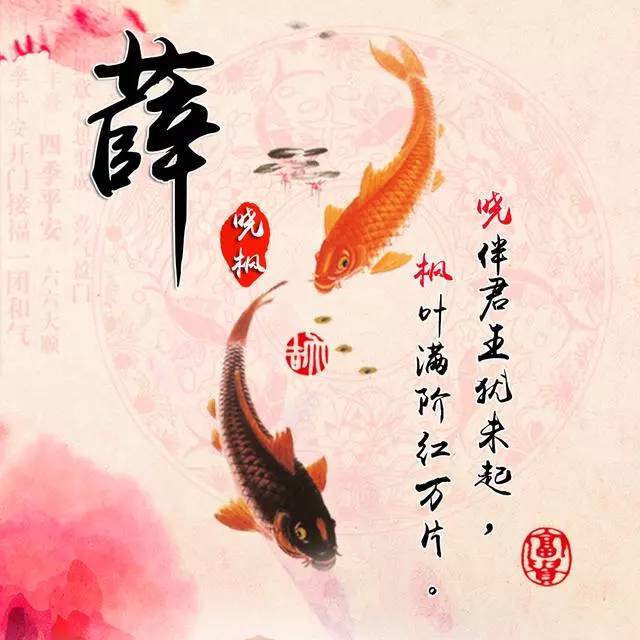 薛
晓枫
晓伴君王犹未起，
枫叶满阶红万片。
富贵
四季平安
六六大顺
季平安开门接福一团和气